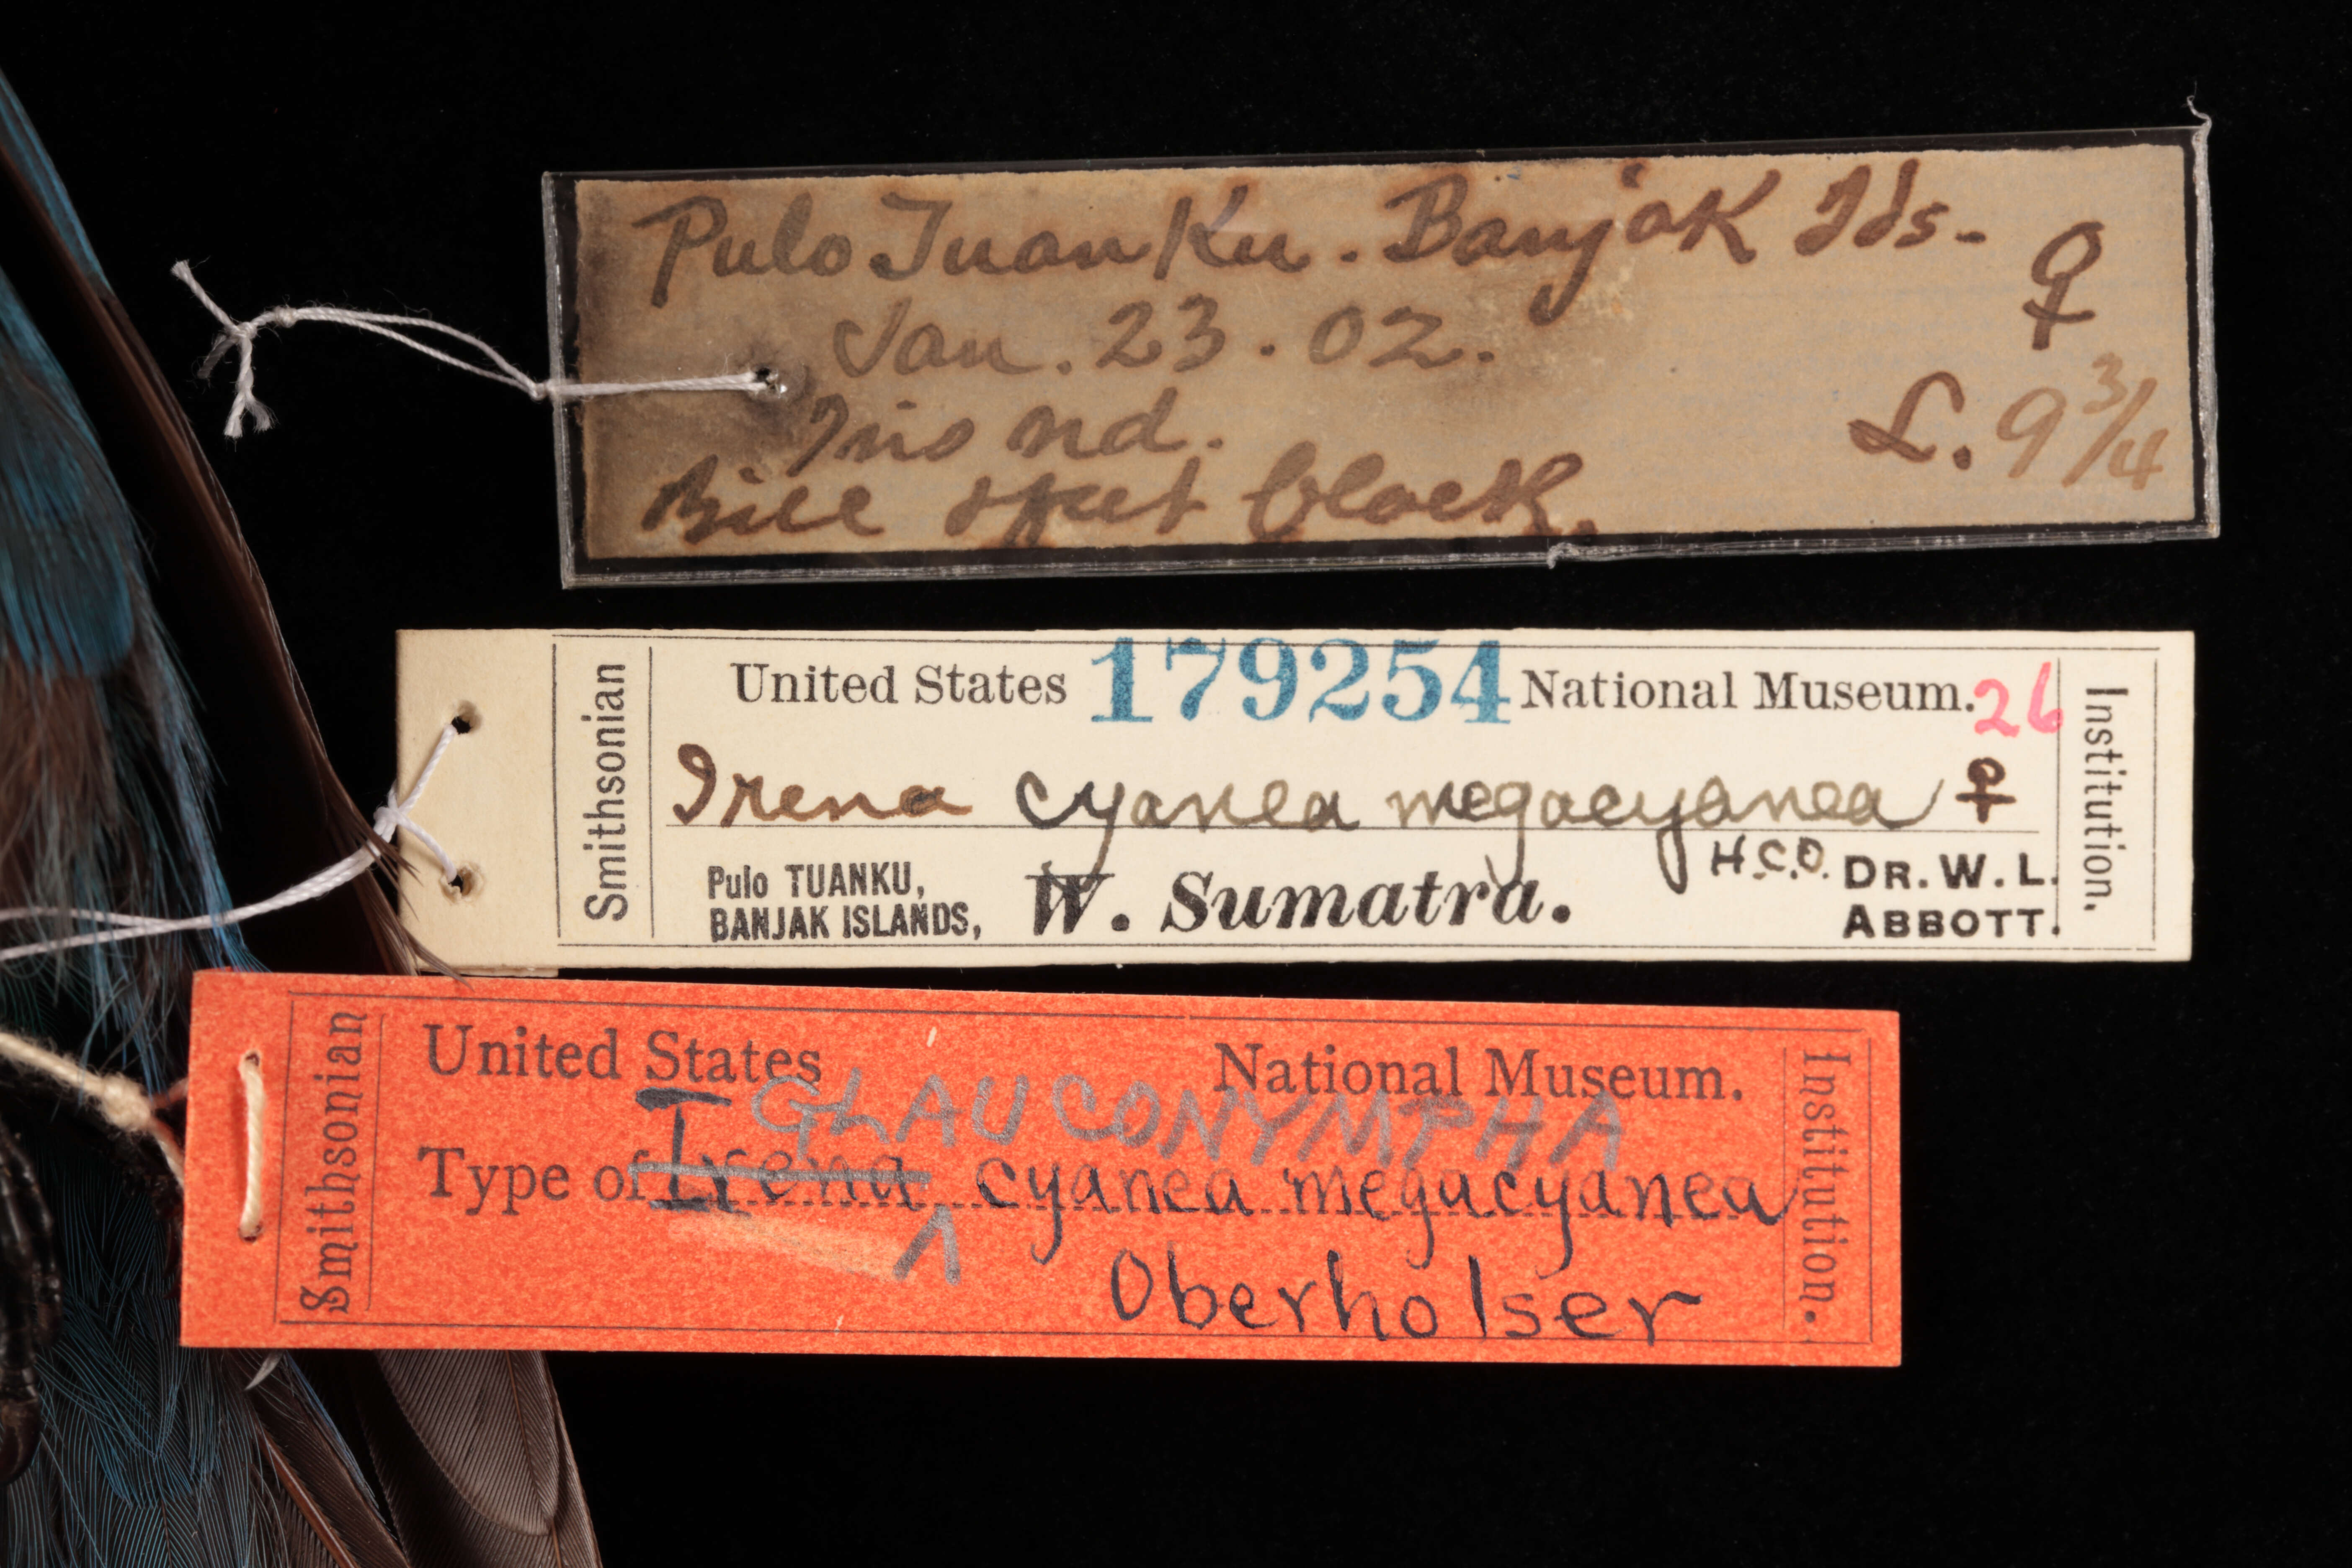 Pulo Tuan Ku. Banjak Ids-
♀
Jan. 23. 02.
Iris nd.
L. 9 3/4
Bill & feet black.
Smithsonian
United States 179254 National Museum. 26
Irena cyanea megacyanea ♀
H.C.O.
Pulo TUANKU,
BANJAK ISLANDS,
W. Sumatra.
DR. W. L.
ABBOTT.
Institution.
Smithsonian
United States National Museum.
GLAUCONYMPHA
Type of Irena cyanea megacyanea
Oberholser
Institution.